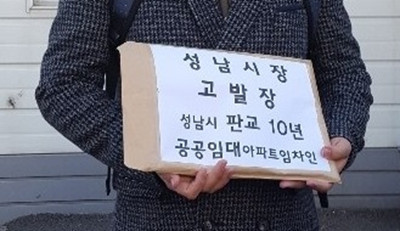 성남시장
고발장
성남시 판교 10년
공공임대아파트임차인